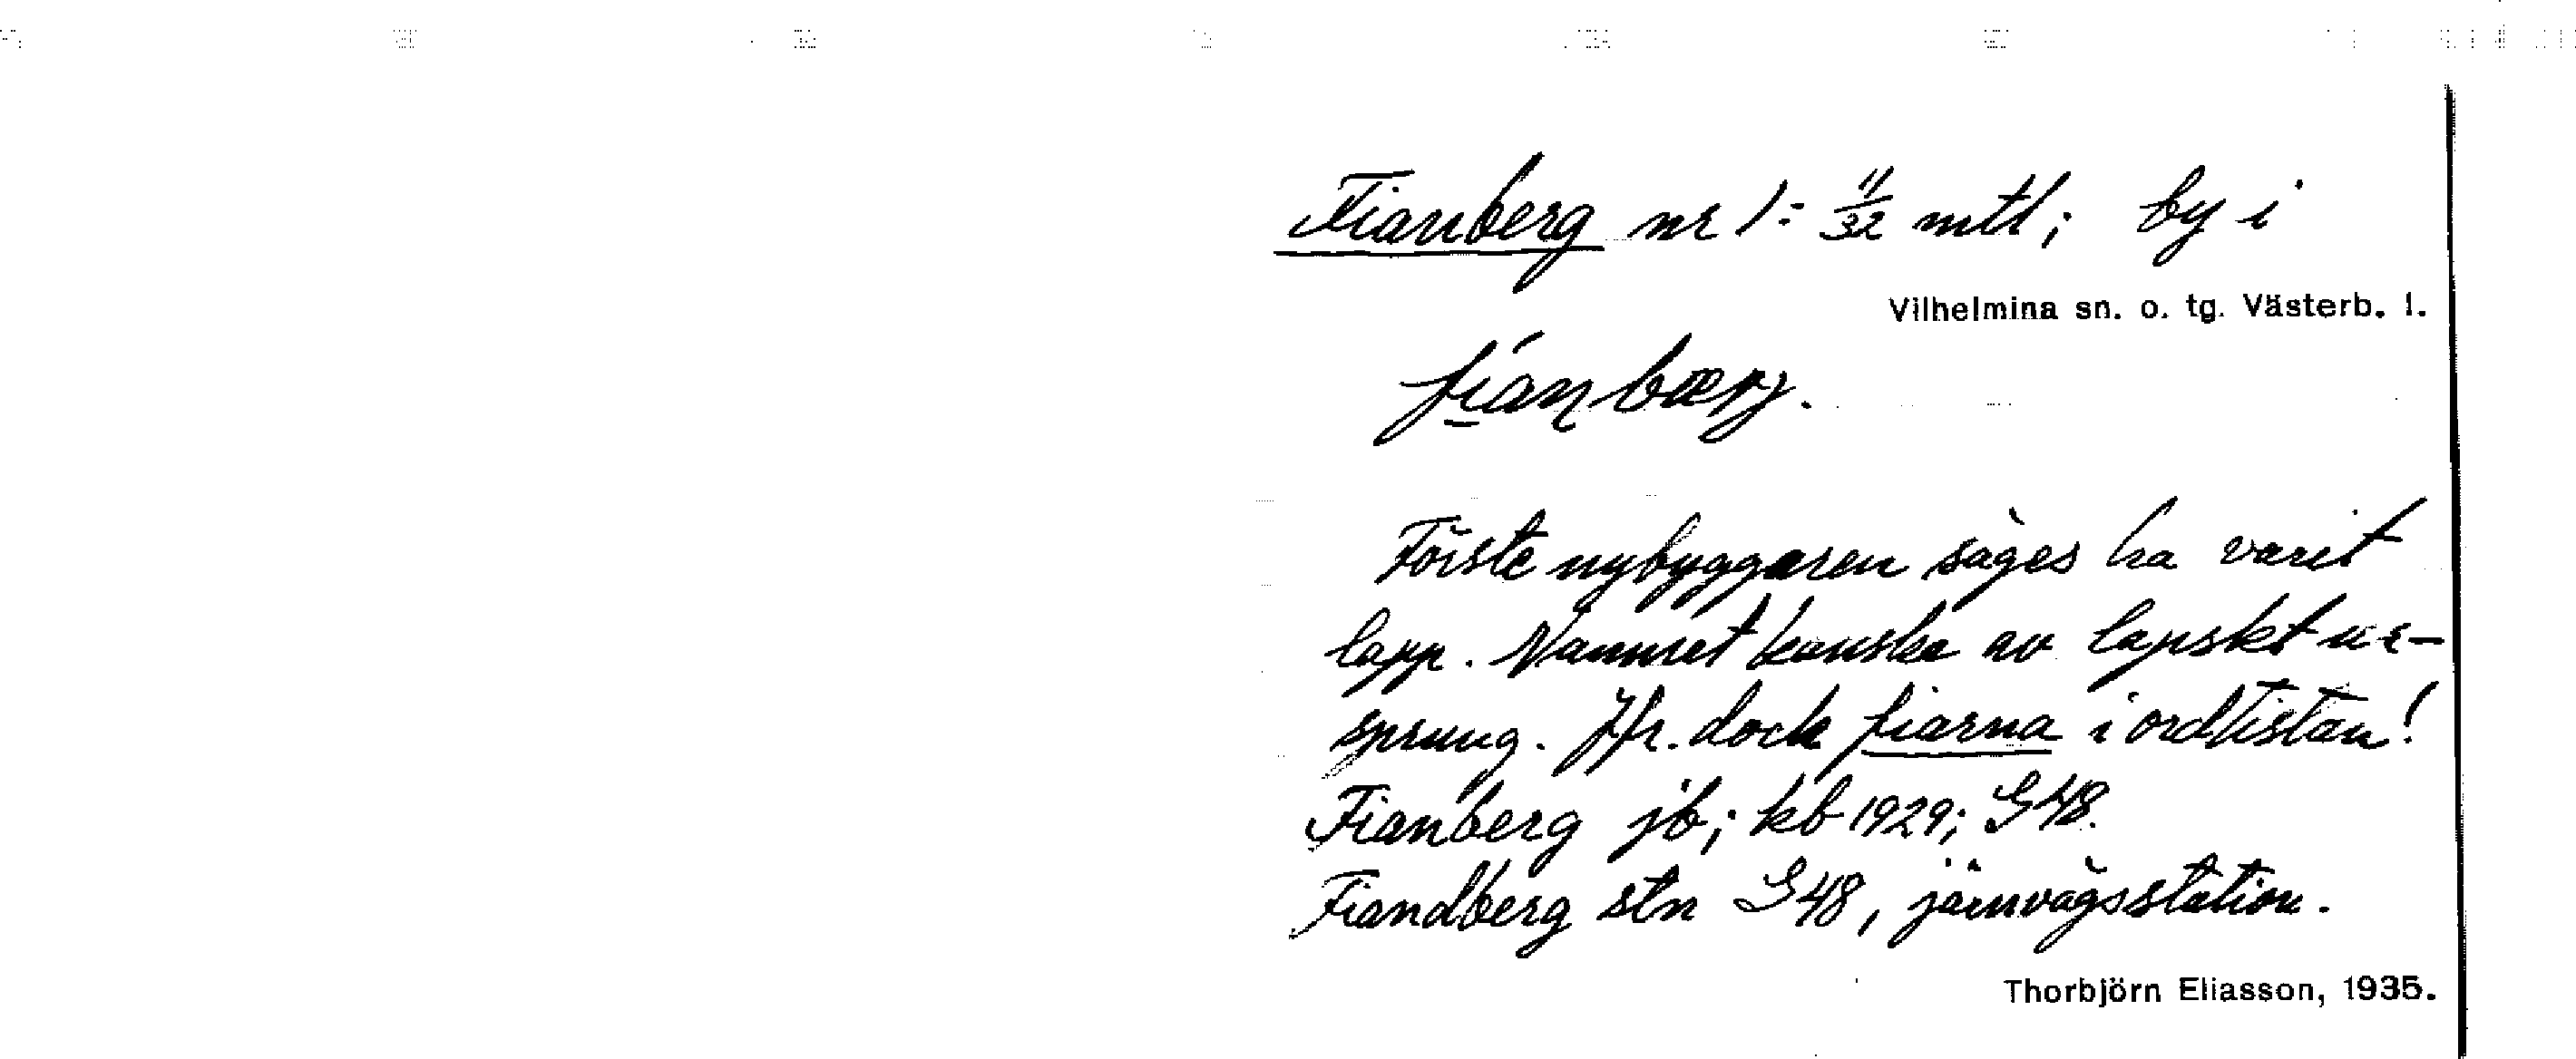 Fianberg nr 1: 11/32 mtl; by i
Vilhelmina sn. o. tg. Västerb. l.
Förste nybyggaren säges ha varit
lapp. Namnet kanske av lapskt ur-
sprung. Jfr. dock fiarna i ordlistan!
Fianberg jb; kb 1929; G48.
Fiandberg stn G48, järnvägsstation.
Thorbjörn Eliasson, 1935.